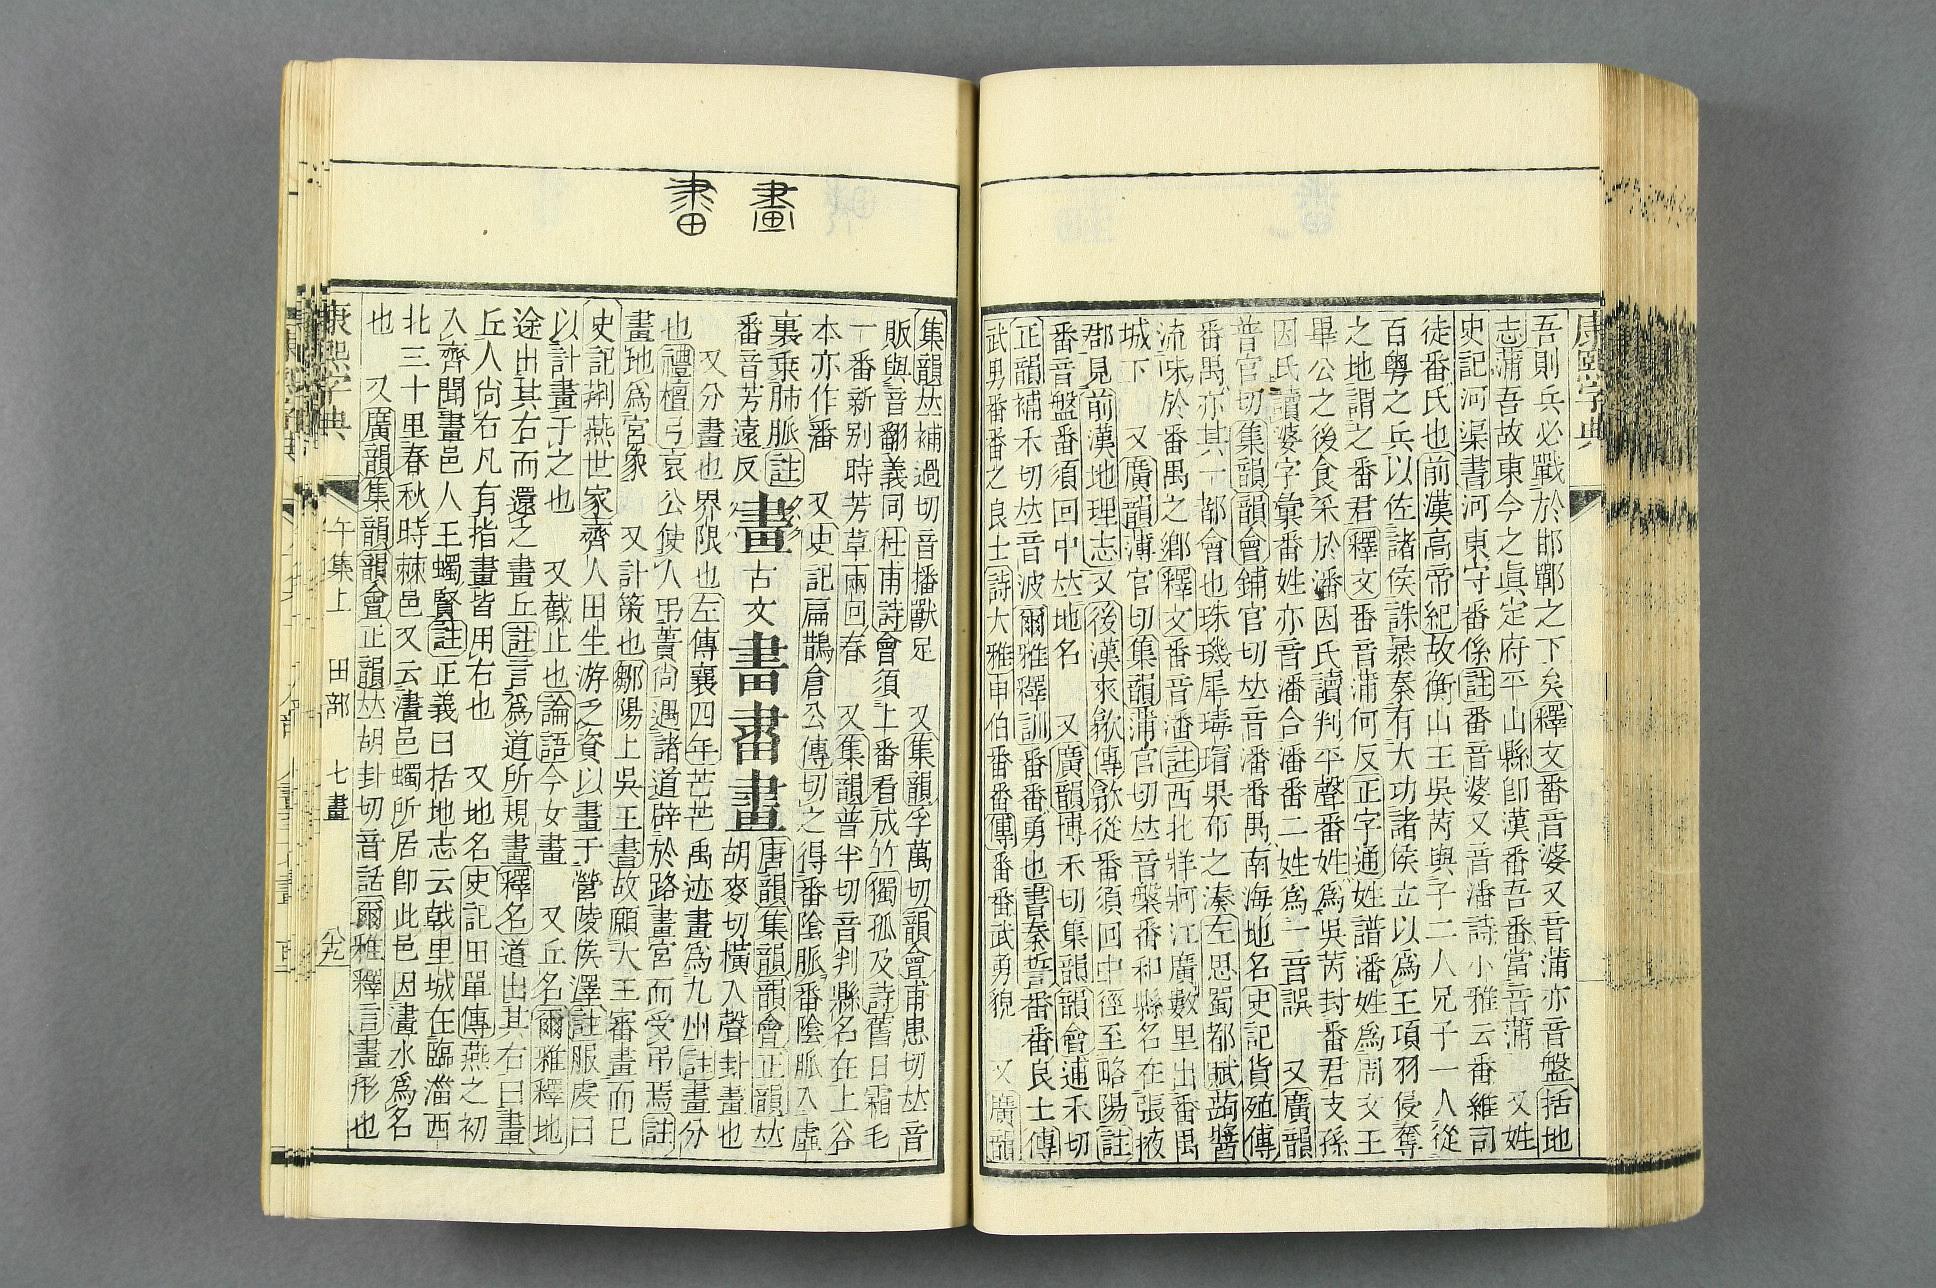 康熙字典
吾則兵必戰於邯鄲之下矣釋文番音婆又音蒲亦音盤括地
志蒲吾故東今之眞定府平山縣卽漢番吾番當音蒲　又姓
史記河渠書河東守番係註番音婆又音潘詩小雅云番維司
徒番氏也前漢高帝紀故衡山王吳芮與子二人兄子一人從
百粵之兵以佐諸侯誅暴秦有大功諸侯立以爲王項羽侵奪
之地謂之番君釋文番音蒲何反正字通姓譜潘姓爲周文王
畢公之後食采於潘因氏讀判平聲番姓爲吳芮封番君支孫
因氏讀婆字彙番姓亦音潘合潘番二姓爲一音誤　又廣韻
普官切集韻韻會鋪官切𠀤音潘番禺南海地名史記貨殖傳
番禺亦其一都會也珠璣犀瑇瑁果布之湊左思蜀都賦蒟醬
流味於番禺之鄉釋文番音潘註西北牂牁江廣數里出番禺
城下　又廣韻薄官切集韻蒲官切𠀤音槃番和縣名在張掖
郡見前漢地理志又後漢來歙傳歙從番須回中徑至略陽註
番音盤番須回中𠀤地名　又廣韻博禾切集韻韻會逋禾切
正韻補禾切𠀤音波爾雅釋訓番番勇也書秦誓番番良士傳
武勇番番之良士詩大雅申伯番番傳番番武勇貌　又廣韻
畫
集韻𠀤補過切音播獸足　又集韻孚萬切韻會甫患切𠀤音
販與音翻義同杜甫詩會須上番看成竹獨孤及詩舊日霜毛
一番新別時芳草兩回春　又集韻普半切音判縣名在上谷
本亦作潘　又史記扁鵲倉公傳切之得番陰脈番陰脈入虛
裏乗肺脈註番音芳遠反
畫古文畵𤲯𦘕胡麥切橫入聲卦畫也唐韻集韻韻會正韻𠀤
又分畫也界限也左傳襄四年芒芒禹迹畫爲九州註畫分
也禮檀弓哀公使人弔蕢尙遇諸道辟於路畫宮而受弔焉註
畫地爲宮象　又計策也鄒陽上吳王書故願大王審畫而已
史記荆燕世家齊人田生游乏資以畫于營陵侯澤註服虔曰
以計畫于之也　又截止也論語今女畫　又丘名爾雅釋地
途出其右而還之畫丘註言爲道所規畫釋名道出其右曰畫
丘人尙右凡有指畫皆用右也　又地名史記田單傳燕之初
入齊聞畫邑人王蠋賢註正義曰括地志云戟里城在臨淄西
北三十里春秋時棘邑又云澅邑蠋所居卽此邑因澅水爲名
也　又廣韻集韻韻會正韻𠀤胡卦切音話爾雅釋言畫形也
康熙字典　午集上　田部　七畫　八十九